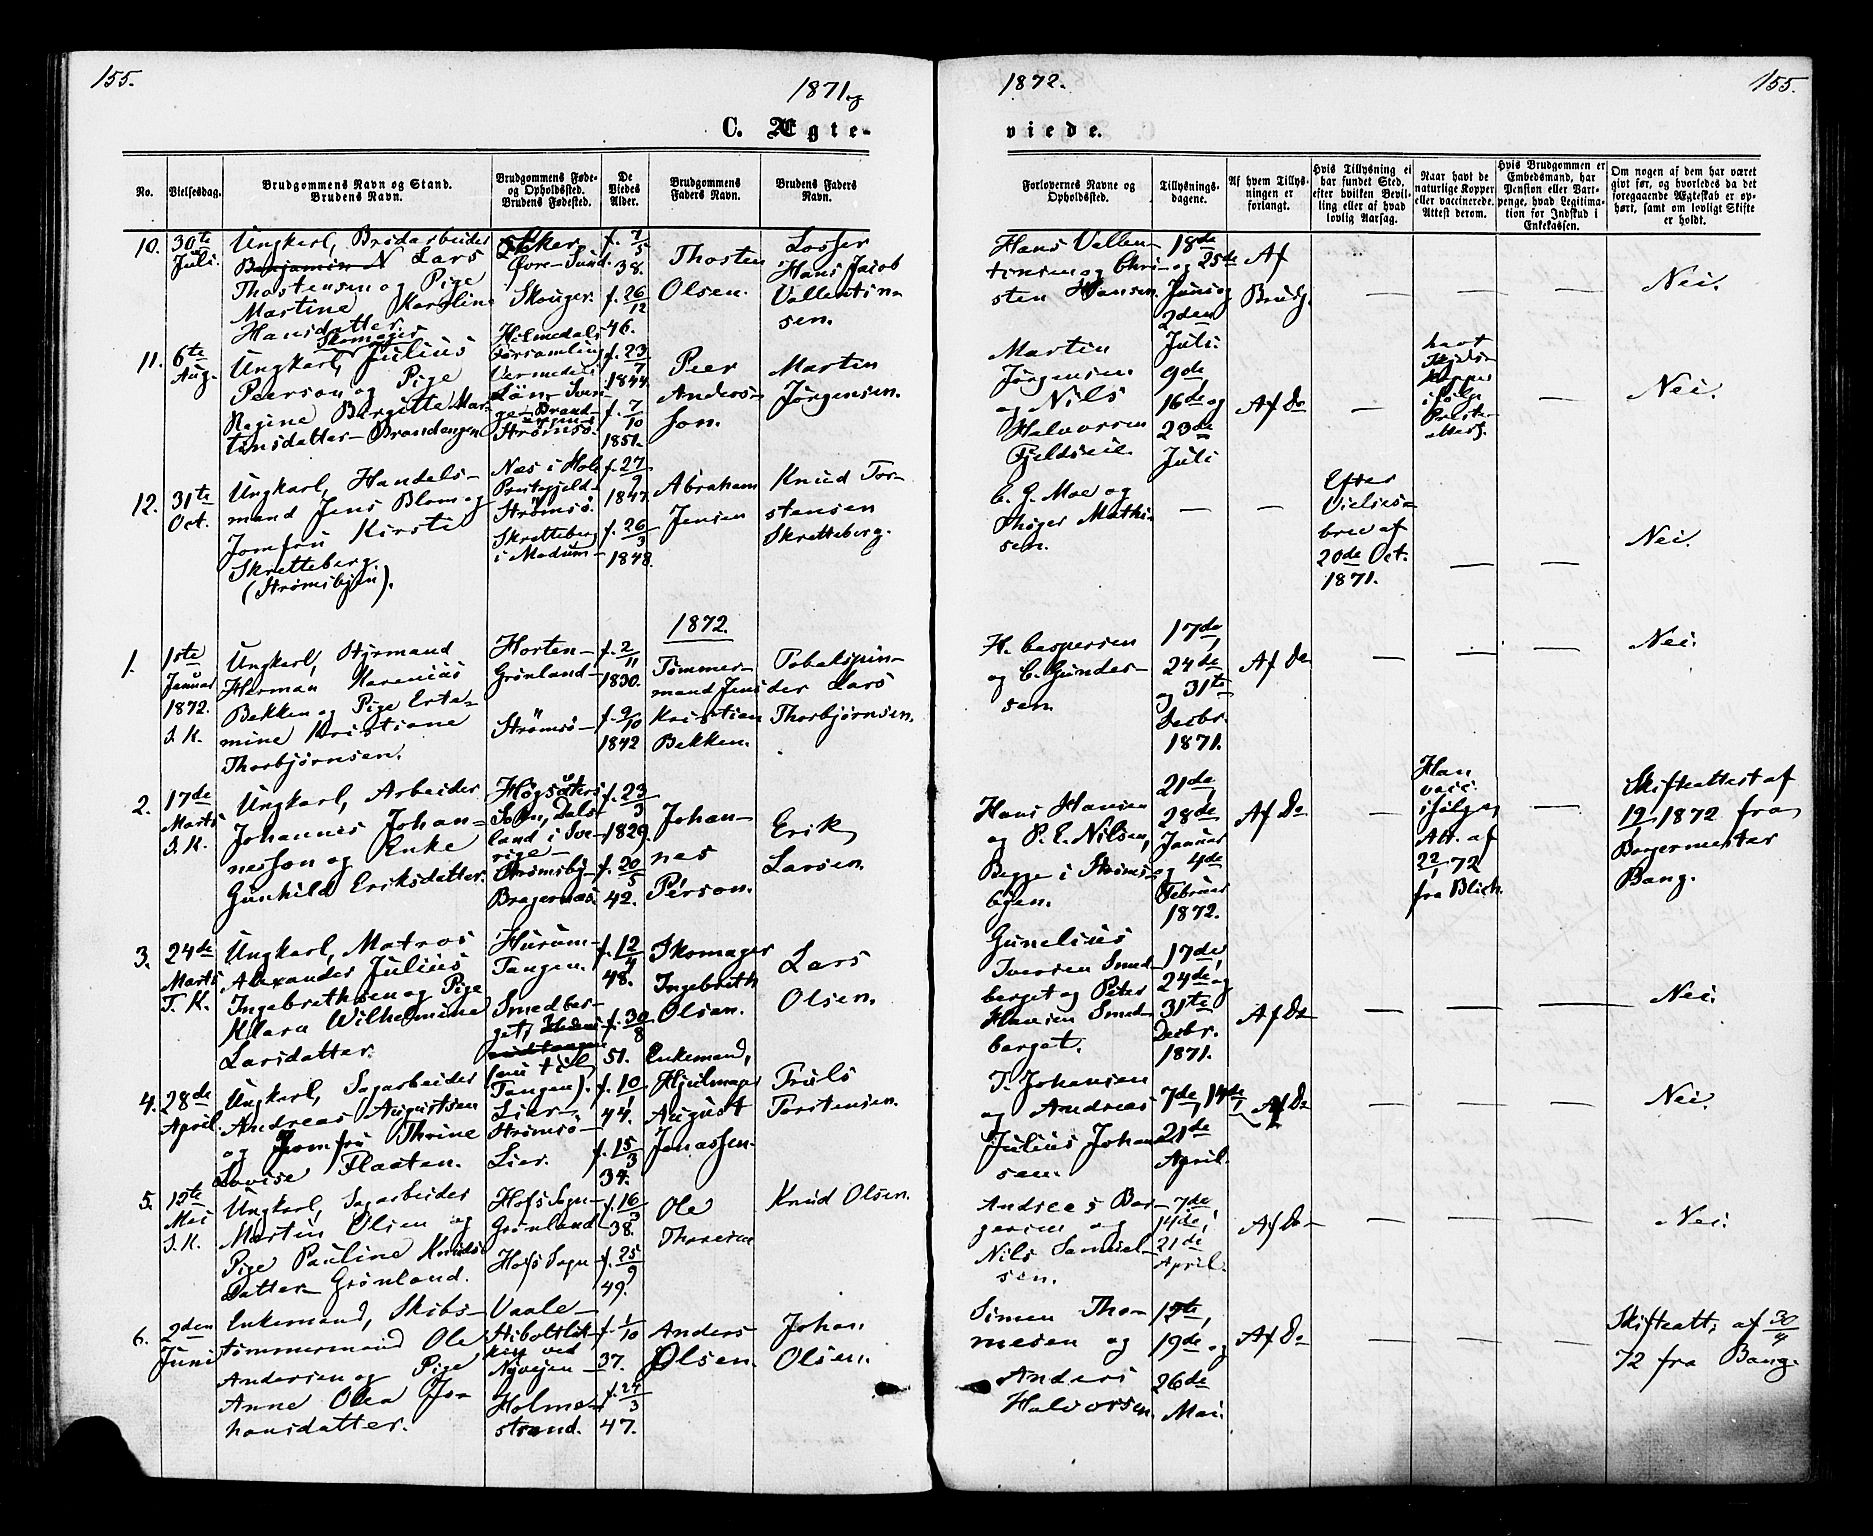 155.
1871 og
C. Ægte-
No.
Vielsesdag.
Brudgommens Navn og Stand.
Brudens Navn.
Brudgommens Føde-
og Opholdssted.
Brudens Fødested.
De
Viedes
Alder.
Brudgommens
Faders Navn.
Brudens Faders
Navn.
10.
30te
Juli.
Ungkarl, Brødarbeider
Benjamin N Lars
Thostensen og Pige
Martine Karoline
Hansdatter.
Eker
Øvre-Sund.
Skouger.
f. 7/5
38.
f. 26/12
46.
Thosten
Olsen.
Losser
Hans Jacob
Vallentin-
sen.
11.
6te
Aug.
Skomager
Ungkarl, Julius
Peerson og Pige
Regine Birgitte Mar-
tinsdatter - Brandengen
Forsamling
Vermelds
Län, Sver-
Strømsø.
f. 23/7
1844.
f. 7/10
1851.
Peer
Anders-
son.
Martin
Jørgensen.
12.
31te
Oct.
Ungkarl, Handels-
mand Jens Blom og
Jomfru Kirsti
Skretteberg.
(Strømsbyen).
Næs i Hole
Præstegjeld -
Strømsö.
Skretteberg
i Modum -
f. 27/9
1847.
f. 26/3
1848.
Abraham
Jensen
Knud Tor-
stensen
Skretteberg.
1872.
1.
1ste
Januar
1872.
S. K.
Ungkarl, Styrmand
Herman Marenius
Bekken og Pige Erta-
mine Kristiane
Thorbjørnsen.
Horten -
Grönland -
Strømsö -
f. 2/11
1830.
f. 9/10
1842
Tømmer-
mand Jens
Kristian
Bekken.
Tobakspin-
der Lars
Thorbjørnsen.
2.
17de
Marts
S. K.
Ungkarl, Arbeider
Johannes Johan-
nesson og Enke
Gunhild Eriksdatter.
Högsäters
Sokn, Dals-
land i Sve-
rige -
Strømsby -
Bragernæs.
f. 23/3
1829.
f. 20/5
42.
Johan-
nes
Pérson.
Erik
Larsen.
3.
24de
Marts
T. K.
Ungkarl, Matros
Alexander Julius
Ingebrethsen og Pige
Klara Wilhelmine
Larsdatter.
Hurum -
Tangen.
Smedber-
get,
(nu til
Tangen).
f. 12/4
48.
f. 30/8
51.
Skomager
Ingebreth
Olsen.
Lars
Olsen.
4.
28de
April
Ungkarl, Sagarbeider
Andreas Augustsen
og Jomfru Thrine
Lovise Flaaten.
Lier -
Strømsö -
Lier.
f. 10/1
44.
f. 15/3
34.
Enkemand,
Hjulmager
August
Jonassen.
Truls
Torstensen.
5.
12te
Mai
S. K.
Ungkarl, Sagarbeider
Martin Olsen og
Pige Pauline Knuds-
datter - Grönland.
Hofs Sogn -
Grönland -
Hofs Sogn -
f. 16/3
38.
f. 25/9
49.
Ole
Thoresen
Knud Olsen.
6.
2den
Juni
Enkemand, Skibs-
tømmermand Ole
Andersen og Pige
Anne Olea Jo-
hansdatter.
Vaale -
ken ved
Nyvejen -
Holme-
strand.
f. 1/10
37.
f. 24/3
47.
Anders
Olsen.
Johan
Olsen.
1872.
155.
viede.
Forlovernes Navne og
Opholdssted.
Tillysnings-
dagene.
Af hvem Tillys-
ningen er
forlangt.
Hvis Tillysning ei
har fundet Sted,
efter hvilken Bevil-
ling eller af hvad
lovlig Aarsag.
Naar havt de
naturlige Kopper
eller vaccinerede.
Attest derom.
Hvis Brudgommen er
Embedsmand, har
Pension eller Vart-
penge, hvad Legitima-
tion for Indskud i
Enkekassen.
Om nogen af dem har været
givt før, og hvorledes da det
foregaaende Ægteskab er op-
hørt, samt om lovligt Skifte
er holdt.
Hans Vallen-
tinsen og Chri-
sten Hansen.
18de
og 25de
Juni og
2den
Juli.
Af
Brudg.
—
—
—
Nei.
Martin
Jørgensen
og Nils
Halvorsen
9de,
16de og
23de
Juli
Af Do
—
havt
Kopper
ifølge
Preste-
attest.
—
Nei.
C. G. Moe og
Mathi-
sen.
—
—
Efter
Vielses-
brev af
20de Oct.
1871.
—
—
Nei.
H. Caspersen
og C. Gunder-
sen.
17de,
24de
og 31te
Decbr.
1871.
Af Do
—
—
—
Nei.
Hans Hansen
og P. E. Nilsen,
Begge i Strøms-
byen.
21de,
28de
Januar
og 4de
Februar
1872.
Af Do
—
Han
vacc.
ifølge
Att. af
22/1 72
fra Blich.
—
Skifteattest af
19/1 1872 fra
Borgermester
Bang.
Gunelius
Iversen Smed-
berget og Peter
Hansen Smed-
berget.
17de,
24de og
31te
Decbr.
1871.
Af Do
—
—
—
Nei.
T. Johansen
og Andreas
Julius Johan-
sen.
7de, 14de,
21de
April.
Af Do
—
—
—
Nei.
Andreas Bør-
gersen og
Nils Samuel-
sen.
7de,
14de,
21de
April.
Af Do
—
—
—
Nei.
Simen Tho-
mesen og
Anders
Halvorsen.
12te,
19de og
26de
Mai.
Af Do
—
—
—
Skifteatt. af 30/4
72 fra Bang.